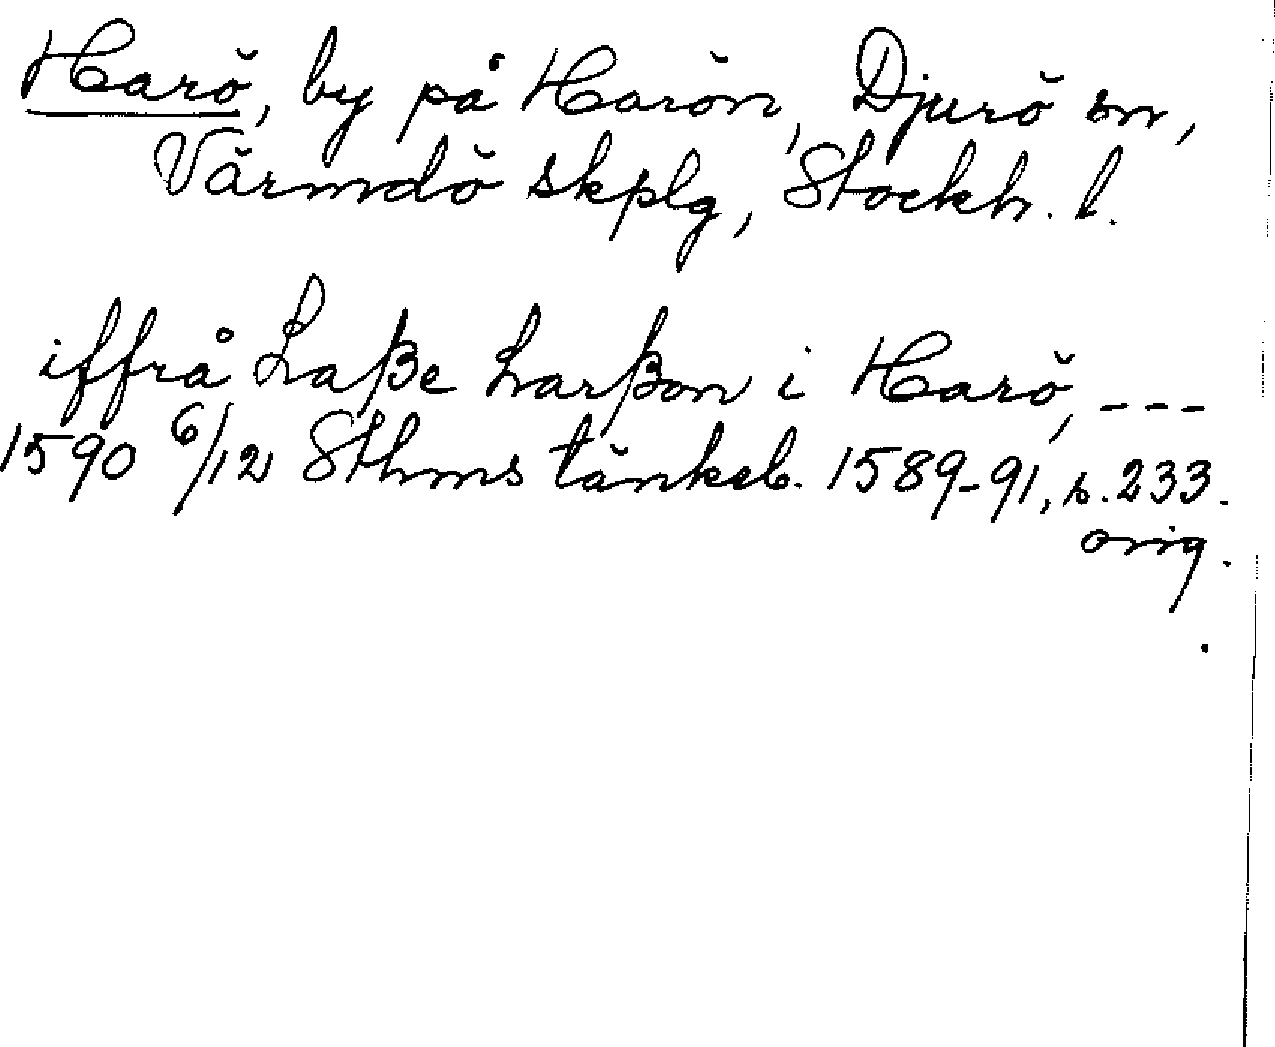 Harö, by på Harön, Djurö sn,
Värmdö skplg, Stockh. l.
iffrå Laße Larßon i Harö, ---
1590 6/12 Sthms tänkeb. 1589-91, s. 233.
orig.